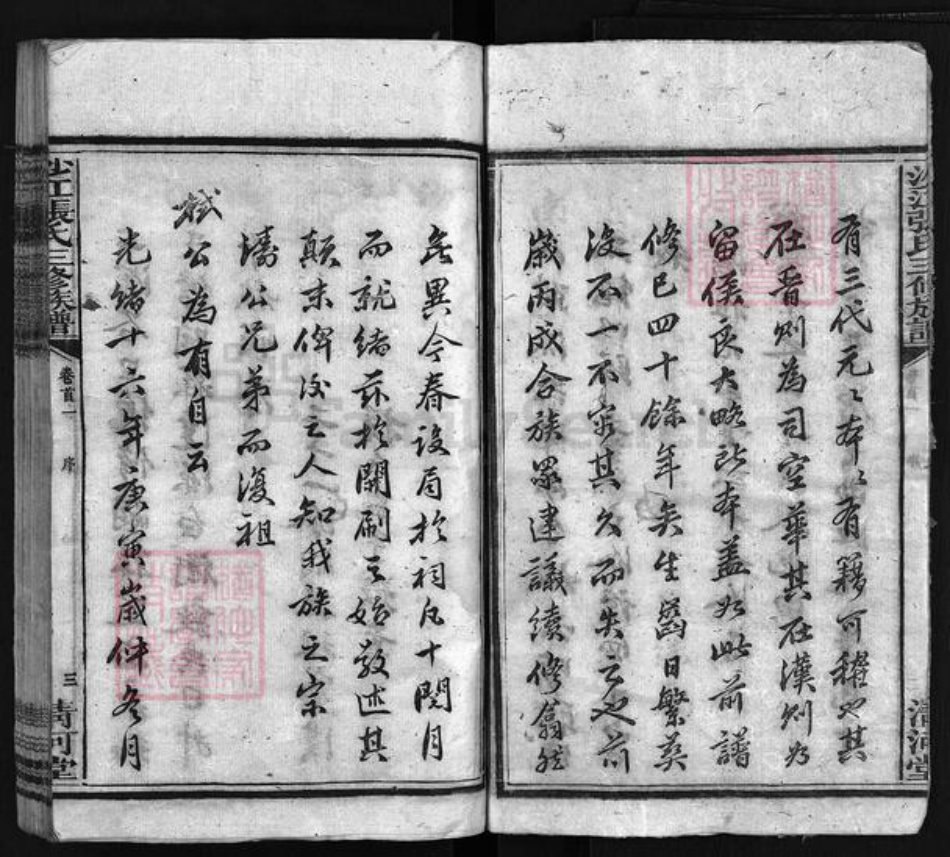 有三代元〻本〻有籍可稽也其
在晋则為司空華其在漢则为
留侯良大略所本盖如此前譜
修已四十餘年矣生齒日繁葬
没不一不穷其久而失之也前
歲丙戍合族眾建議續修翕然
無異今春設局於祠凡十閱月
而就緒茲於開刷之始敬述其
顛末俾後之人知我族之宗
濤公兄弟而復祖
栻公為有自云
光緒十六年庚寅歲仲冬月
沙江張氏三修族譜
卷首一
序
三
清河堂
沙江張氏三修族譜
清河堂